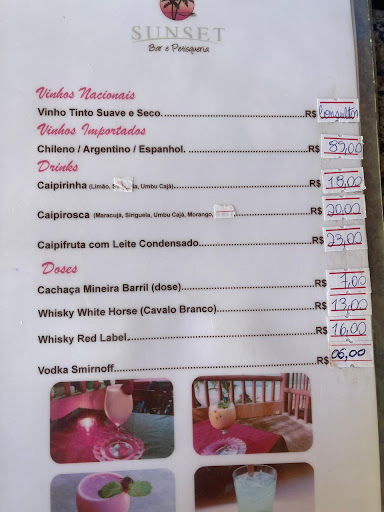 SUNSET
Bar e Petisqueria
Vinhos Nacionais
Vinho Tinto Suave e Seco. R$ Consultar
Vinhos Importados
Chileno / Argentino / Espanhol. R$ 89,00
Drinks
Caipirinha (Limão, Umbu Cajá) R$ 18,00
Caipirosca (Maracujá, Siriguela, Umbu Cajá, Morango, R$ 20,00
Caipifruta com Leite Condensado R$ 23,00
Doses
Cachaça Mineira Barril (dose) R$ 7,00
Whisky White Horse (Cavalo Branco) R$ 13,00
Whisky Red Label R$ 16,00
Vodka Smirnoff R$ 06,00